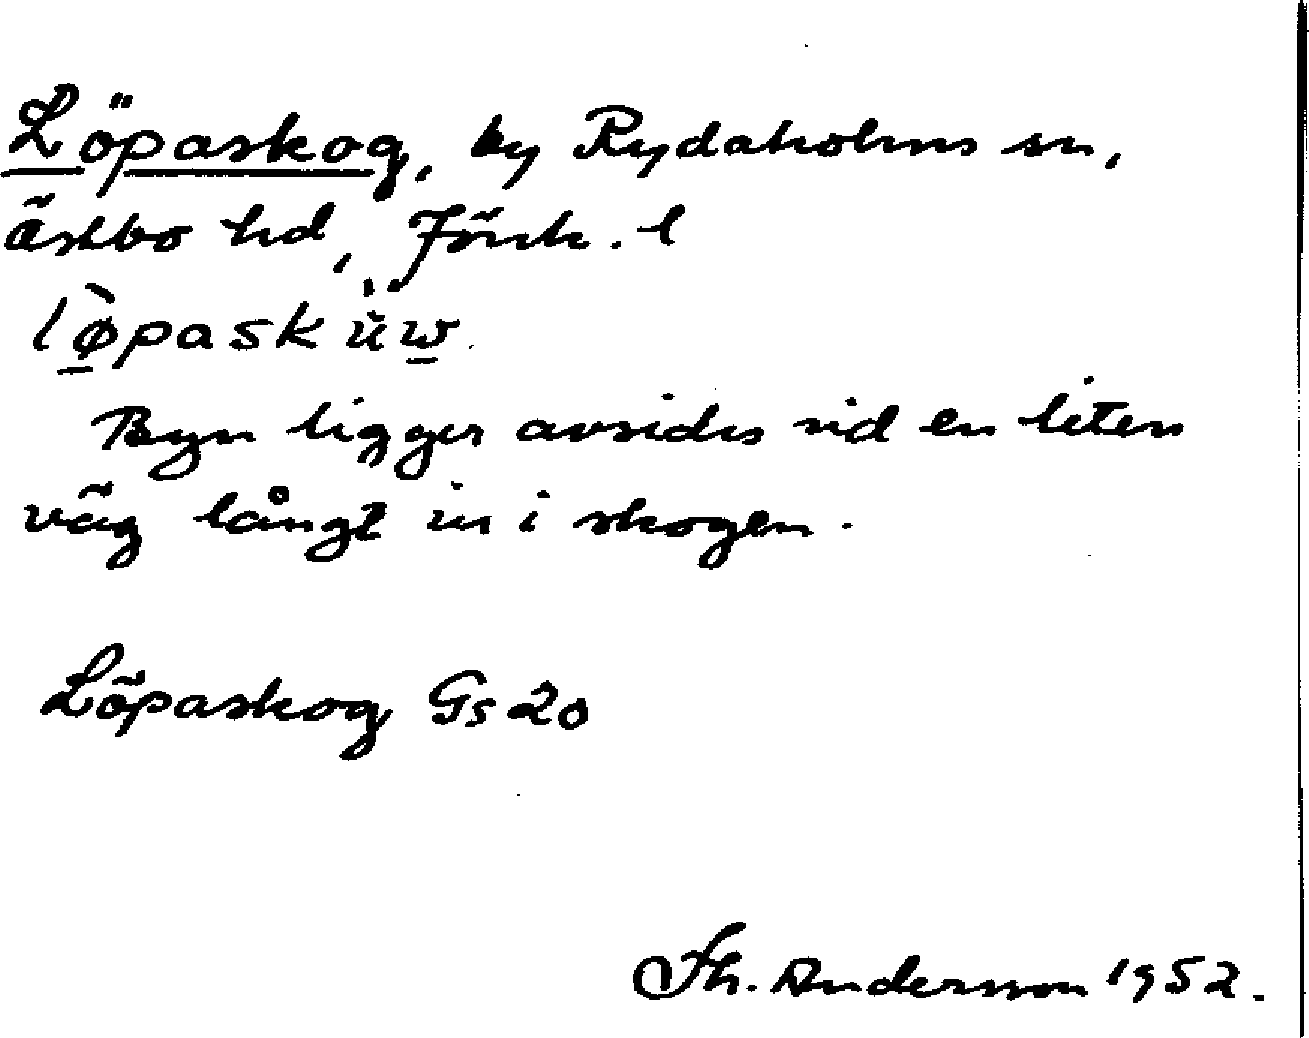 Löpaskog, by Rydaholms sn,
Östbo hd, Jönk. l
lø̀paskùw
Byn ligger avsides vid en liten
väg långt in i skogen.
Löpaskog Gs 20
Th. Andersson 1952.